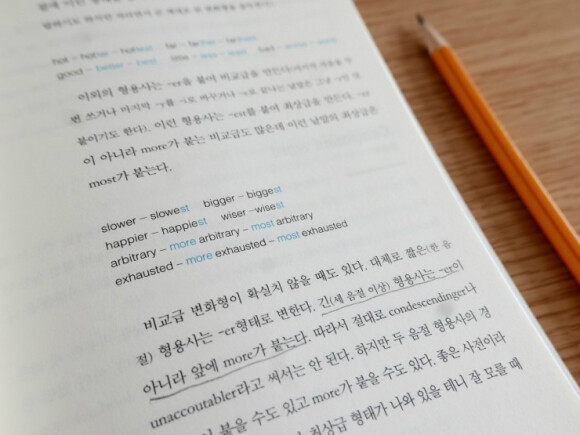 hot – hotter – hottest far – farther – farthest
good – better – best little – less – least bad – worse – worst
이외의 형용사는 -er을 붙여 비교급을 만든다
번 쓰거나 마지막 -y를 -i로 바꾸거나 -e로 끝나는 낱말은 그냥
붙이기도 한다). 이런 형용사는 -est를 붙여 최상급을 만든다. -er
이 아니라 more가 붙는 비교급도 많은데 이런 낱말의 최상급은
most가 붙는다.
slower – slowest bigger – biggest
happier – happiest wiser –wisest
arbitrary – more arbitrary – most arbitrary
exhausted – more exhausted – most exhausted
비교급 변화형이 확실치 않을 때도 있다. 대체로 짧은(한 음
절) 형용사는 -er형태로 변한다. 긴(세 음절 이상) 형용사는 -er이
아니라 앞에 more가 붙는다. 따라서 절대로 condescendinger나
unaccoutabler라고 써서는 안 된다. 하지만 두 음절 형용사의 경
이 붙을 수도 있고 more가 붙을 수도 있다. 좋은 사전이라
최상급 형태가 나와 있을 테니 잘 모를 때